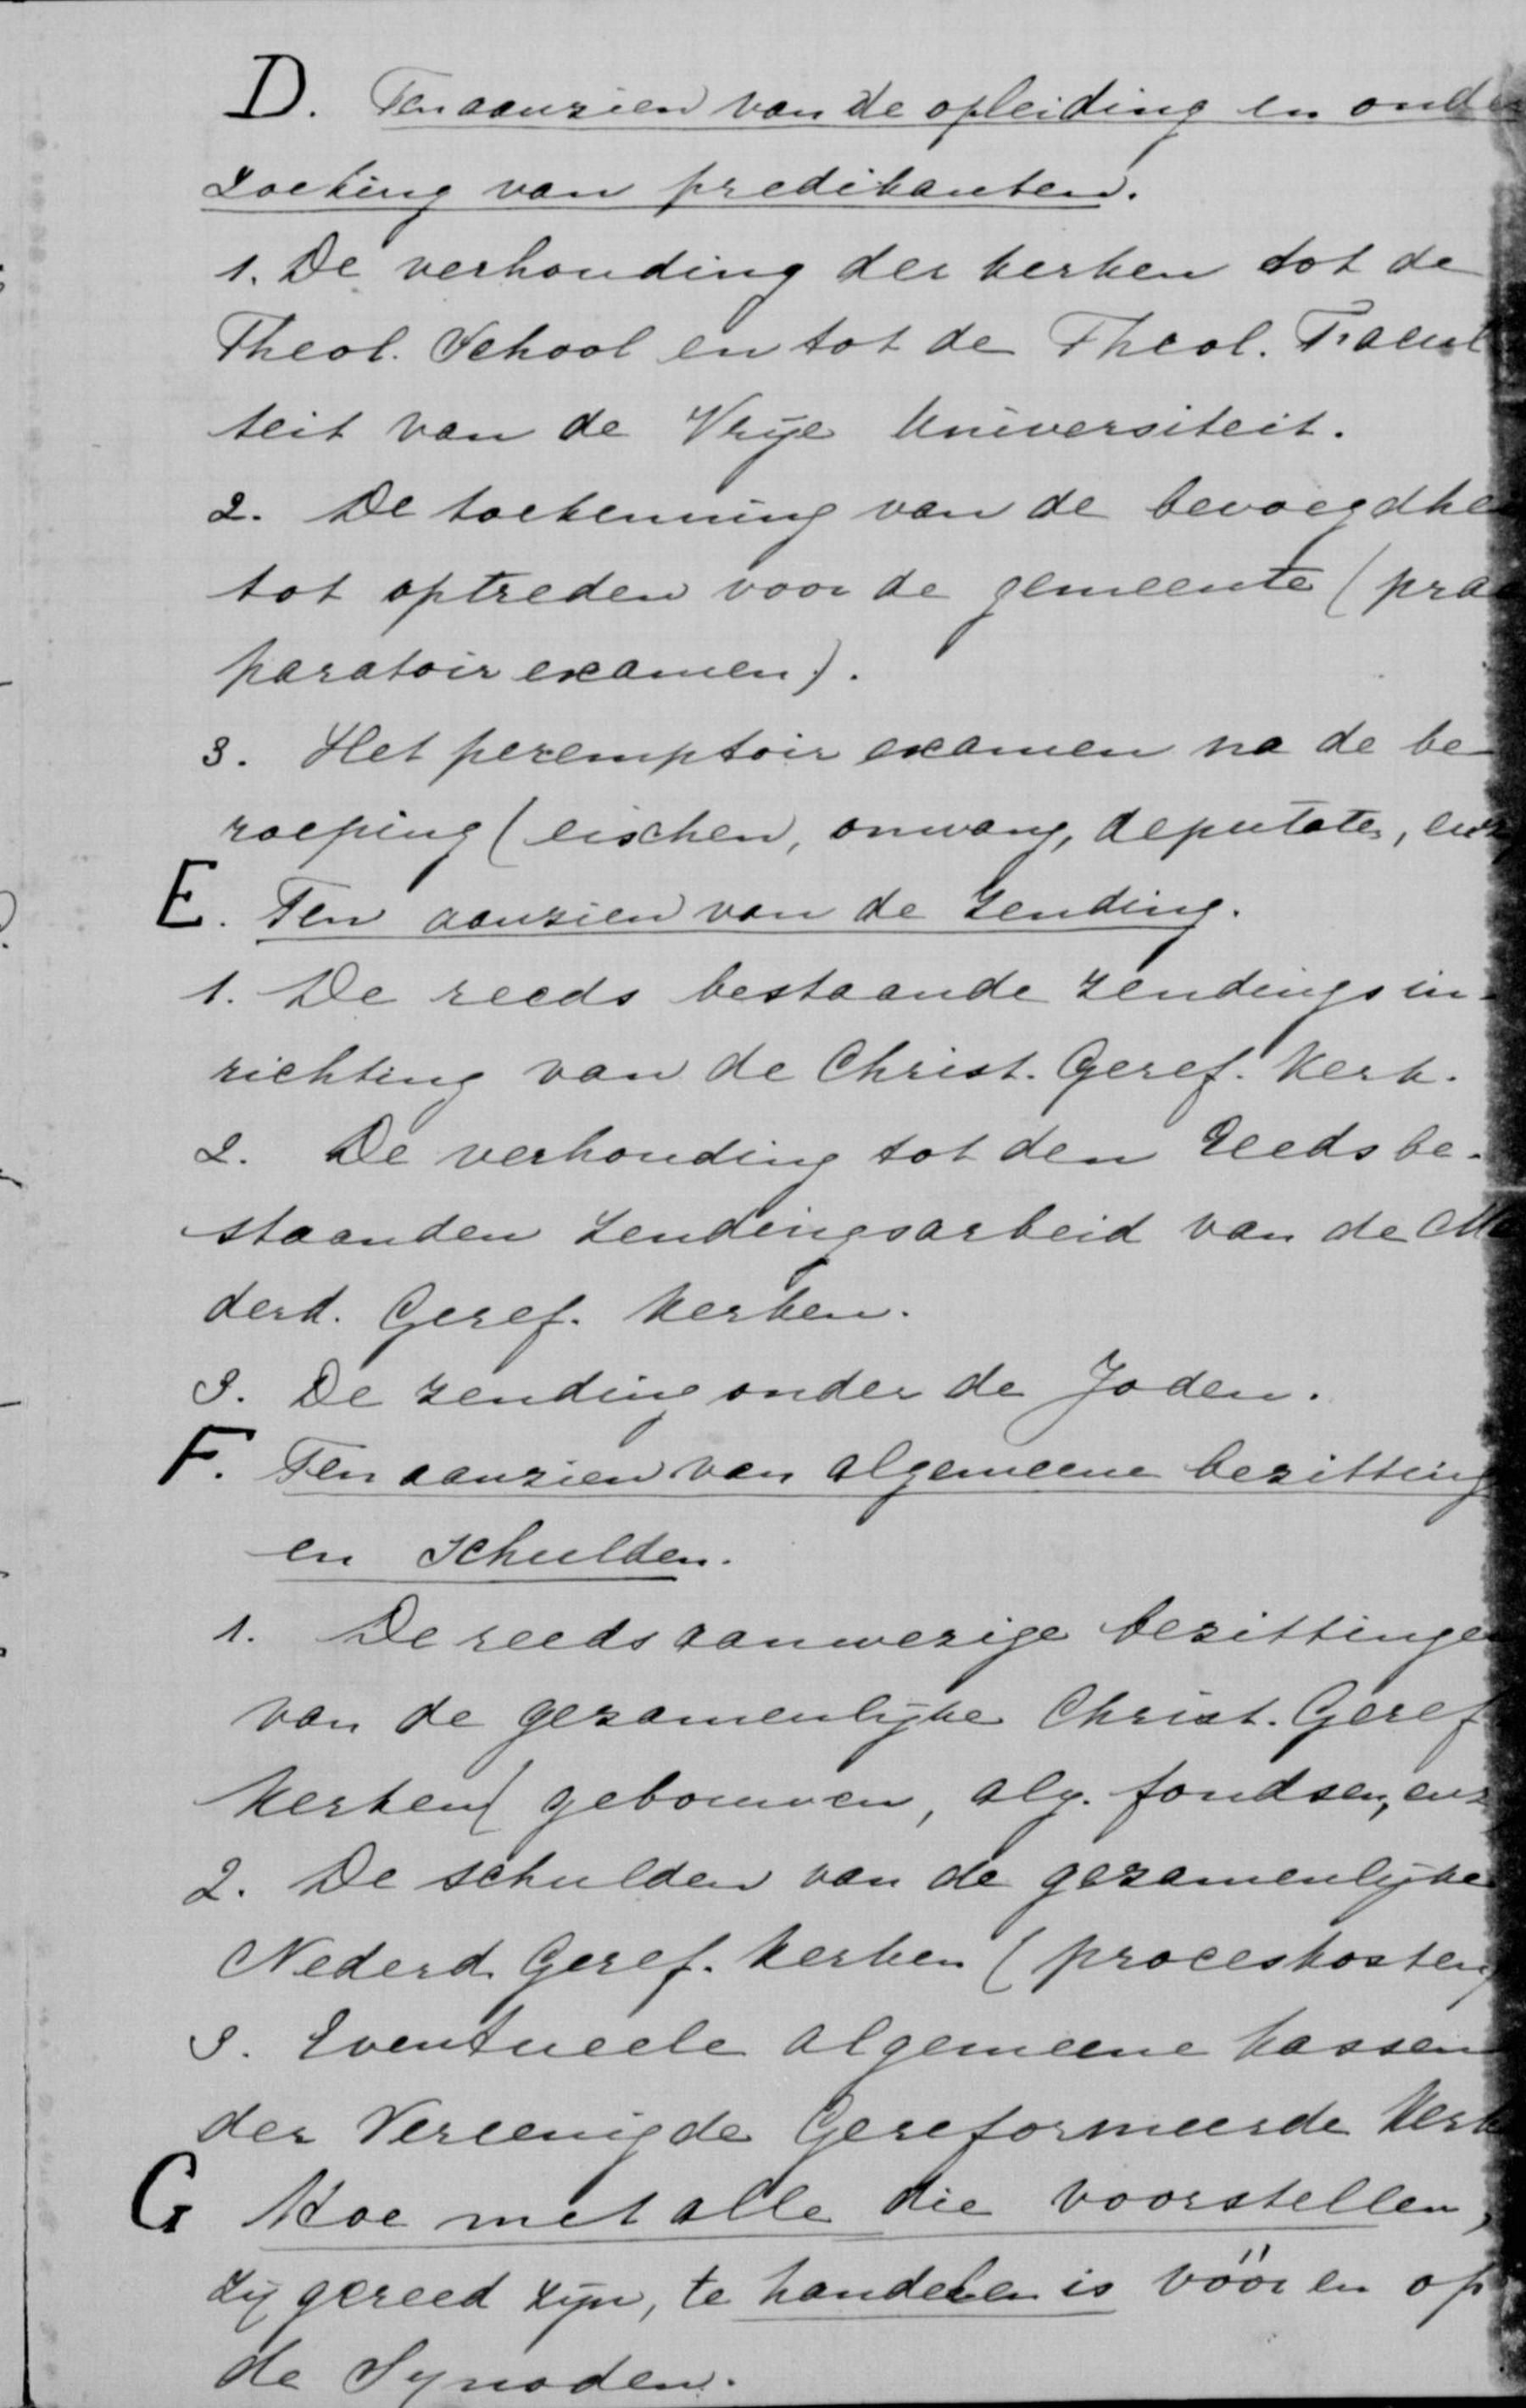 D. Ten aanzien van de opleiding en onder
zoeking van predikanten.
1. De verhouding der kerken tot de
Theol. School en tot de Theol. Facul
teit van de Vrije Universiteit.
2. De toekenning van de bevoegdhe
tot optreden voor de gemeente (prae
paratoir examen).
3. Het peremptoir examen na de be
roeping (eischen, omvang, deputaten, enz
E. Ten aanzien van de zending.
1. De reeds bestaande zendingsin-
richting van de Christ. Geref. Kerk.
2. De verhouding tot den reeds be-
staanden zendingsarbeid van de Ne
derd. Geref. Kerken.
3. De zending onder de Joden.
F. Ten aanzien van algemeene bezitting
en schulden.
1. De reeds aanwezige bezittingen
van de gezamenlijke Christ. Geref
Kerken (gebouwen, alg. fondsen, enz
2. De schulden van de gezamenlijke
Nederd. Geref. Kerken (proceskosten)
3. Eventueele algemeene kassen
der Vereenigde Gereformeerde Kerk
G Hoe met alle die voorstellen,
zij gereed zijn, te handelen is vóór en op
de Synoden.